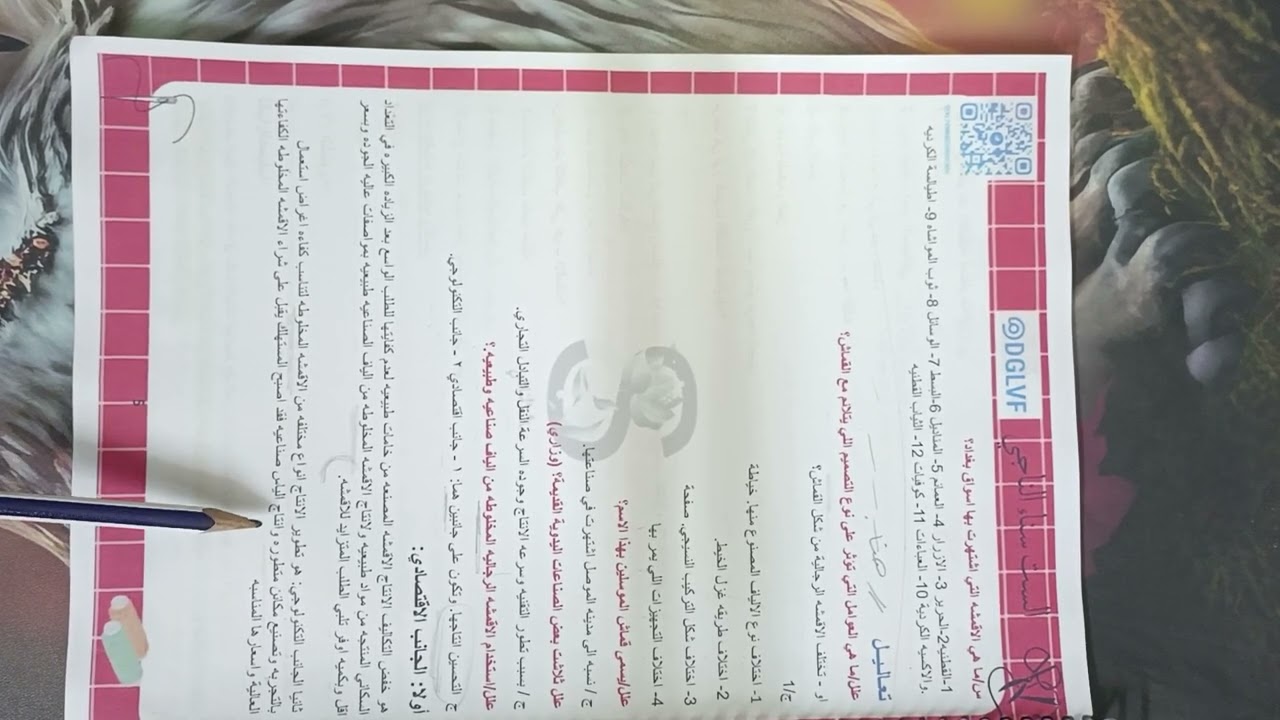 الست سناء الناجي
DGLVF
س/ما هي الاقمشه التي اشتهرت بها اسواق بغداد؟
1-القطنيه2-الحرير 3- الازرار 4- العمائم 5- المناديل 6-البسط 7- الوسائل 8- ثوب المواشاه 9- اطيالسة الكرديه
والاكسيه الكردية 10- العباءات 11- كوفيات 12- الثياب القطنيه
تعاليل
علل/ما هي العوامل التي تؤثر على نوع التصميم اللي يتلائم مع القماش؟
او - تختلف الاقمشه الرجالية من شكل القماش؟
ج/1
1- اختلاف نوع الالياف المصنوع منها. خياطة
2- اختلاف طريقه غزل الخيط.
3- اختلاف شكل التركيب النسيجي. صفحة
4- اختلاف التجهيزات اللي يمر بها
علل/يسمى قماش الموسلين بهذا الاسم؟
ج / نسبه الى مدينه الموصل اشتهرت في صناعتها.
علل تلاشت بعض الصناعات اليدوية القديمة؟ (وزاري)
ج / بسبب تطور التقنيه وسرعه الانتاج وجوده السرعة النقل والتبادل التجاري.
علل/استخدام الاقمشه الرجاليه المخلوطه من الياف صناعيه وطبيعيه.؟
ج التحسين انتاجها. وتكون على جانبين هما: ١ - جانب اقتصادي ٢ - جانب التكنولوجي.
أولا: الجانب الاقتصادي:
هو خفض التكاليف الانتاج الاقمشه المصنعه من خامات طبيعيه لعدم كفايتها للطلب الواسع بعد الزياده الكبيره في التعداد
السكاني المنتجه من مواد طبيعيه ولانتاج الاقمشه المخلوطه من الياف الصناعيه طبيعيه بمواصفات عاليه الجوده وبسعر
اقل وبكميه اوفر تلبي الطلب المتزايد للاقمشه.
ثانيا الجانب التكنولوجي: هو تطوير الانتاج انواع مختلفه من الاقمشه المخلوطه لتناسب كفاءه اغراض استعمال
بالتجربه وتصنيع مكائن متطوره وانتاج الياس صناعيه فقد اصبح المستهلك يقبل على شراء الاقمشه المخلوطه لكفاءتها
العالية واسعارها المناسبه
5